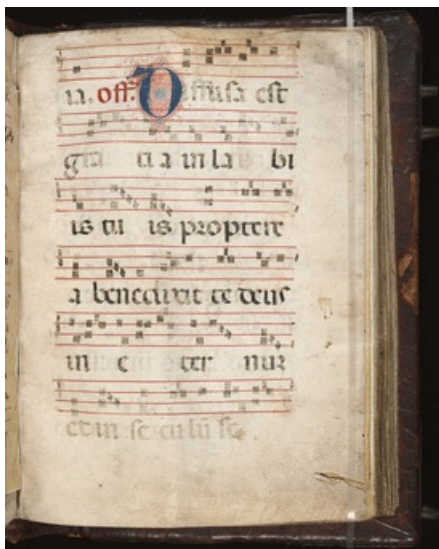 ia. off. Diffusa est
gra ti a in la bi
is tu is proptere
a benedixit te deus
in e ter num
et in seculū se